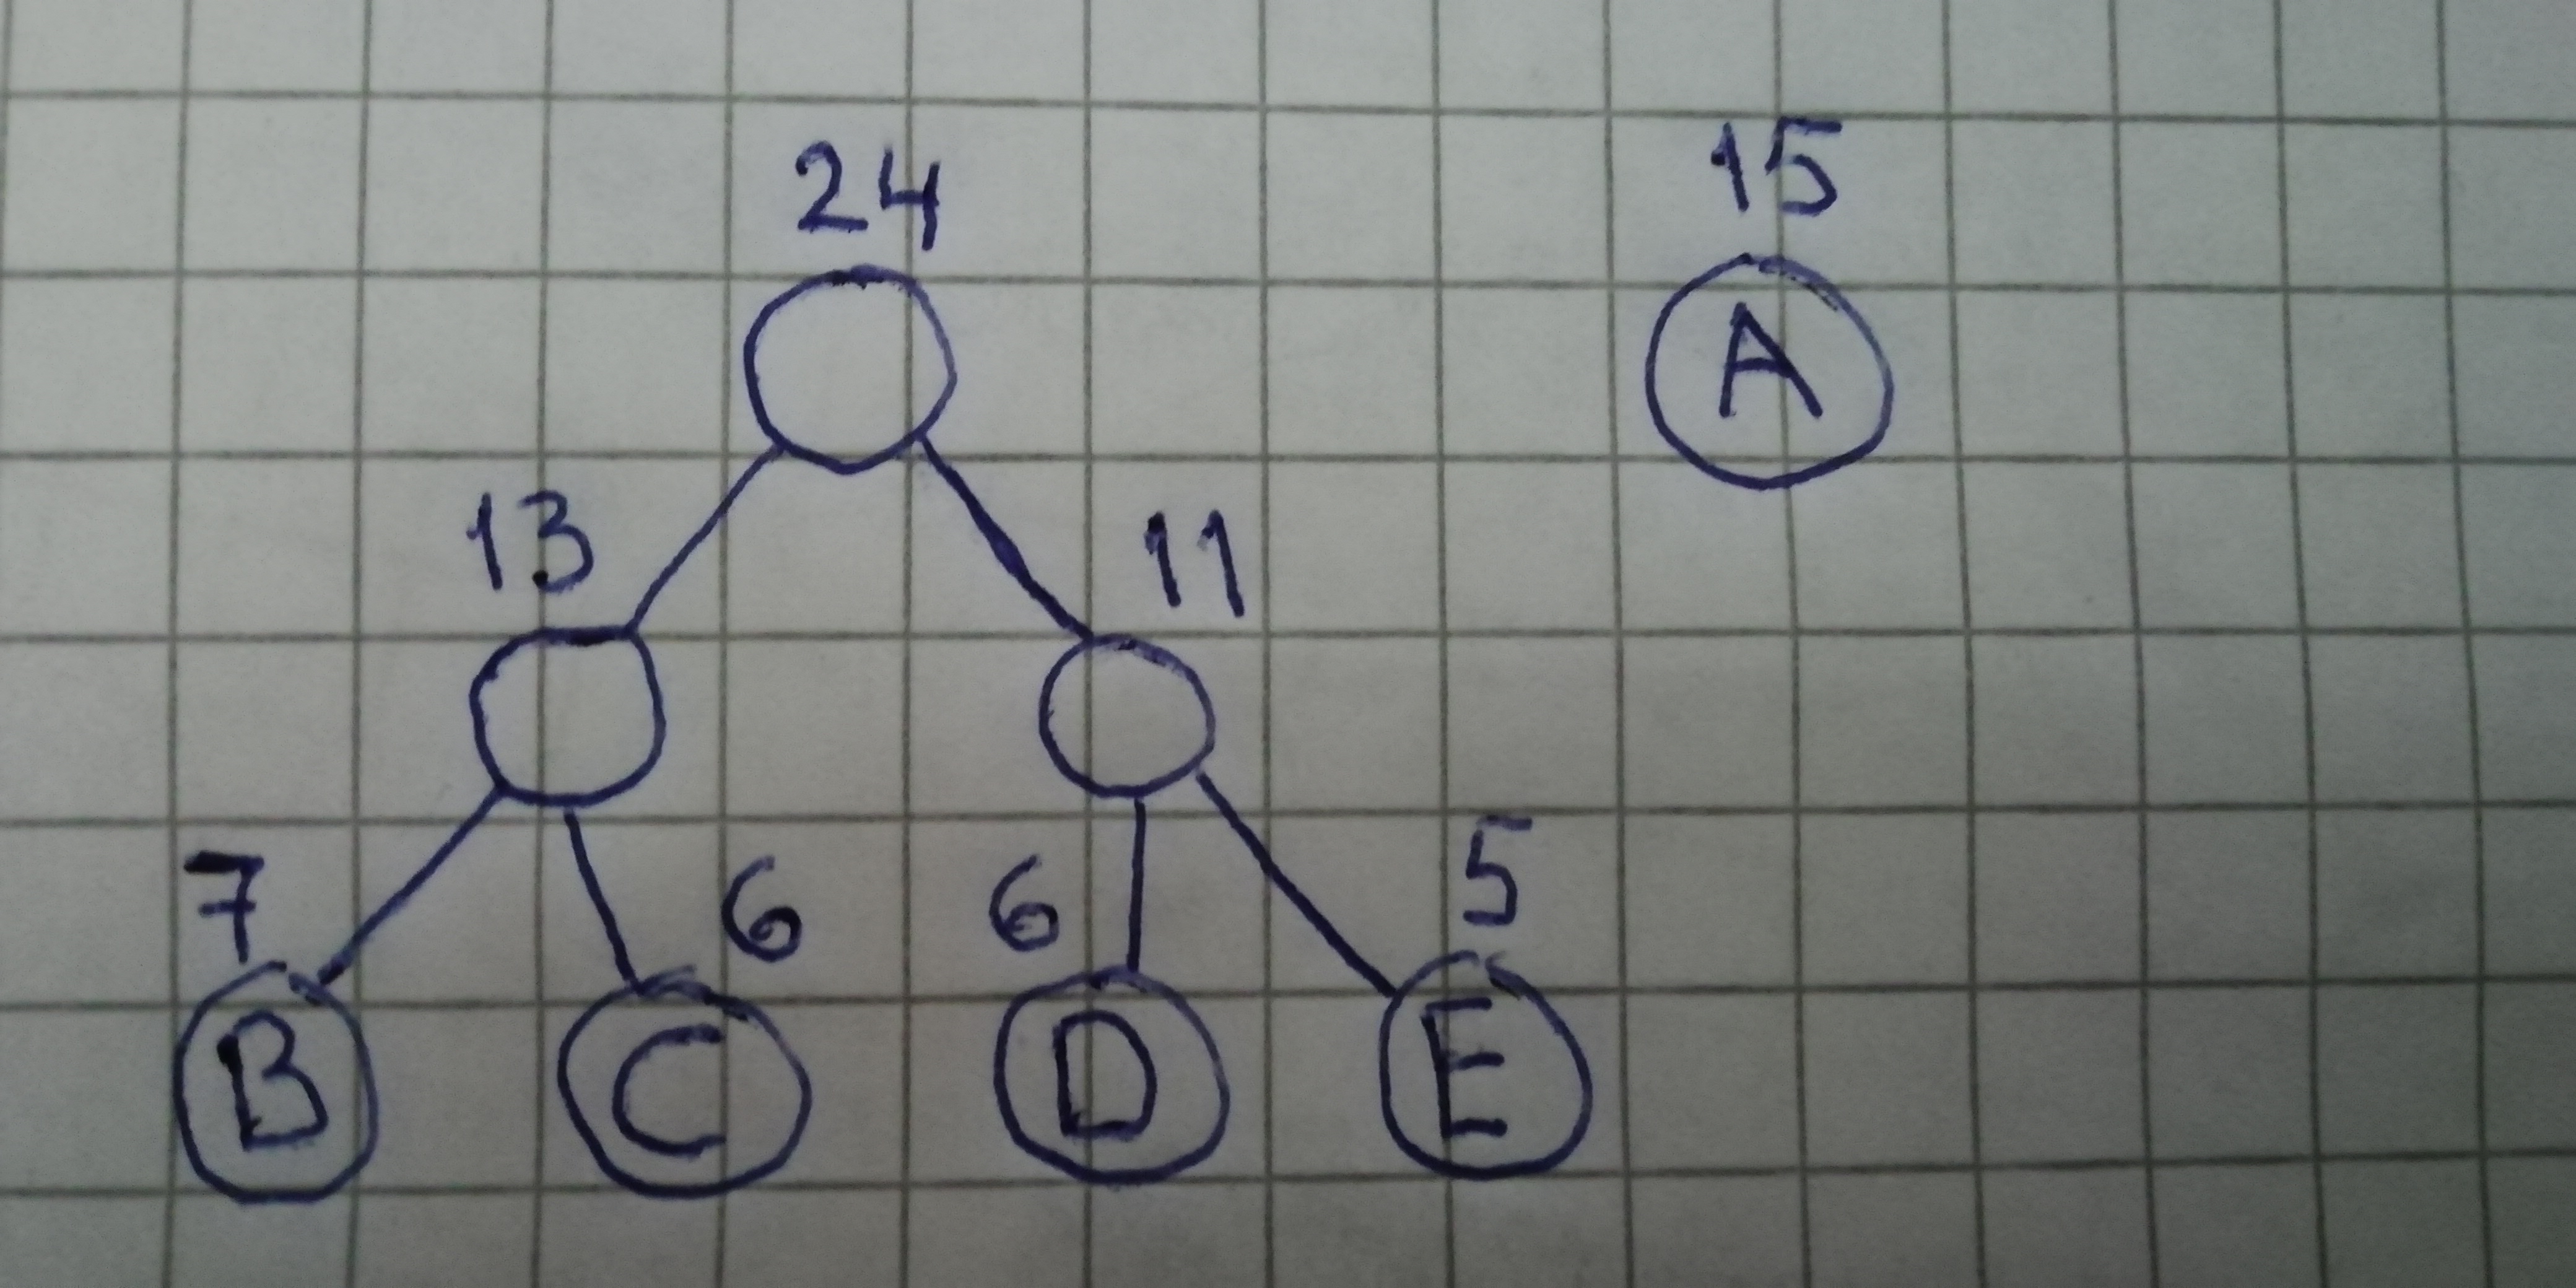 24 15
A
13 11
7 6 6 5
B C D E